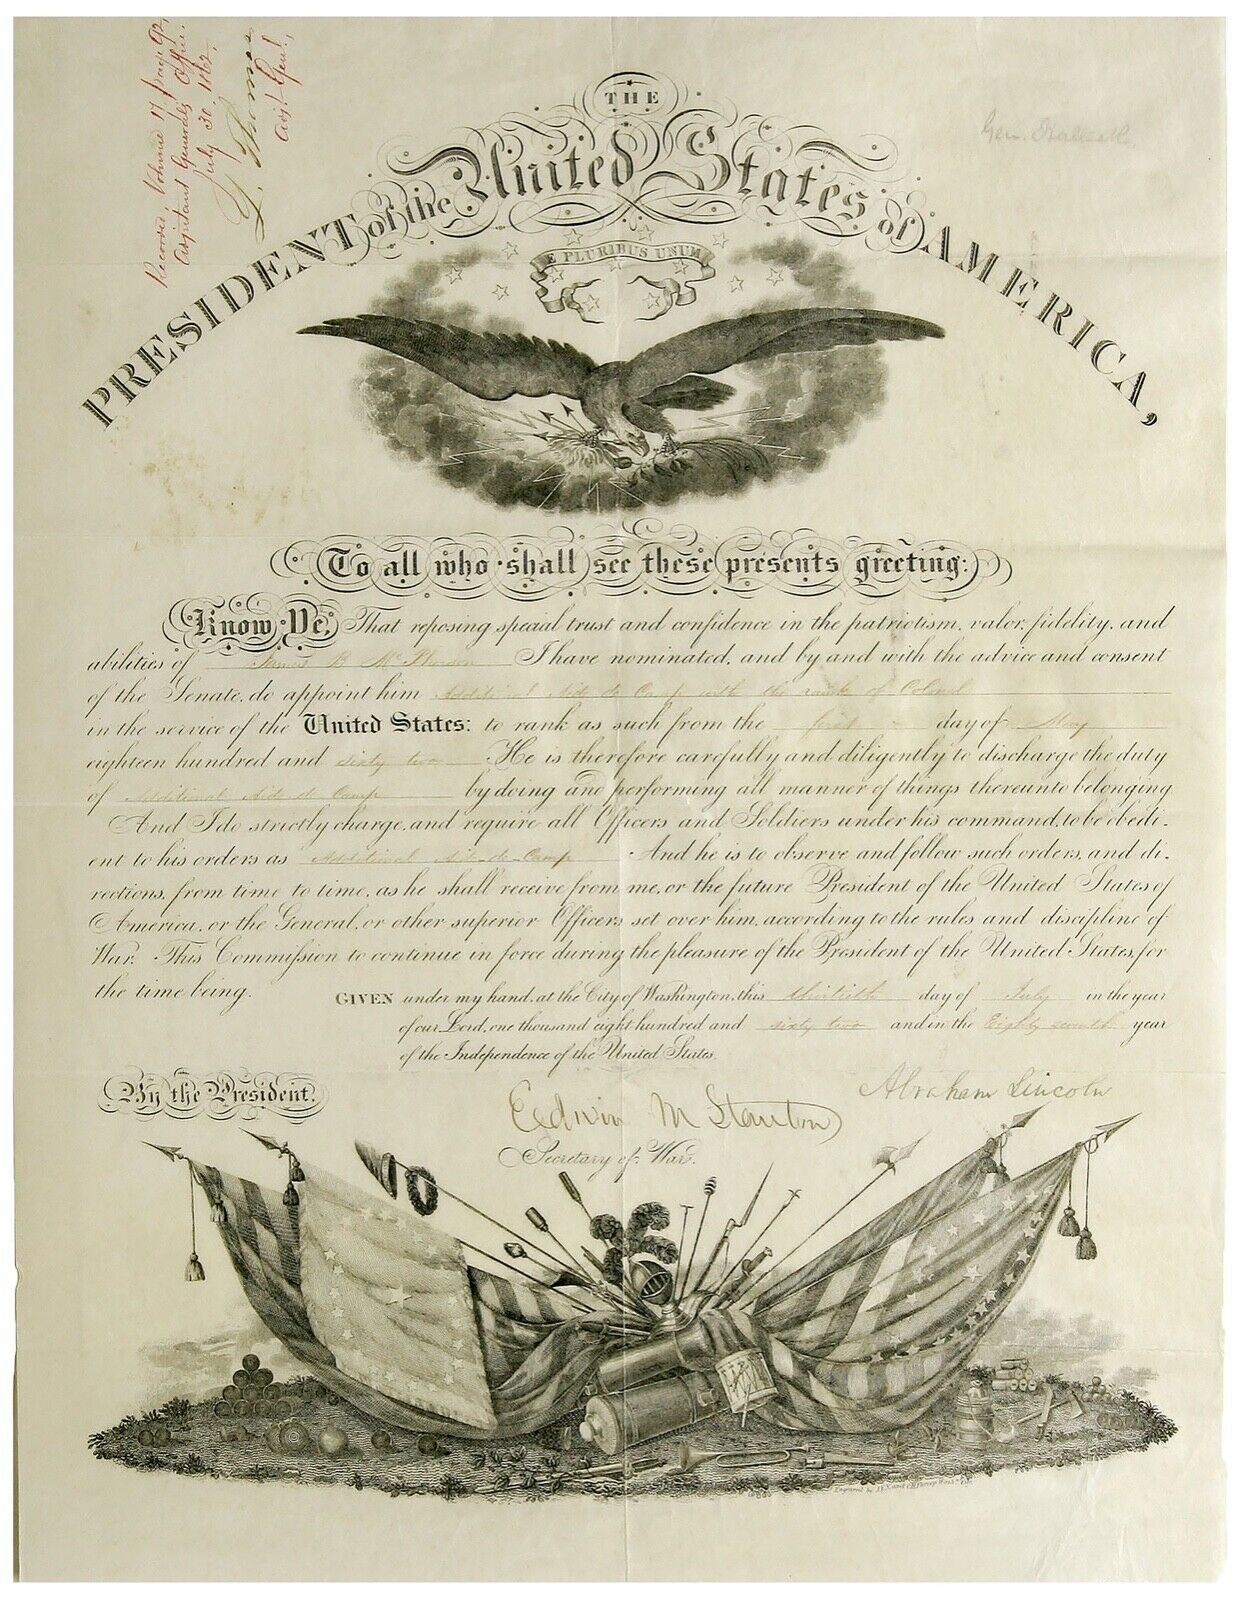 Recorded, Volume 17 page 92,
Adjutant Generals Office
July 30, 1862,
L. Thomas
Adjt. Genl.,
Gen. Halleck
THE
PRESIDENT of the United States of AMERICA,
E PLURIBUS UNUM
To all who shall see these presents greeting:
Know Ye, That reposing special trust and confidence in the patriotism, valor, fidelity, and
abilities of James B McPherson I have nominated, and by and with the advice and consent
of the Senate, do appoint him Additional Aide de Camp with the rank of Colonel
in the service of the United States: to rank as such from the first day of May
eighteen hundred and sixty two He is therefore carefully and diligently to discharge the duty
of Additional Aide de Camp by doing and performing all manner of things thereunto belonging
And I do strictly charge, and require all Officers and Soldiers under his command, to be obedi-
ent to his orders as Additional Aid-de-Camp And he is to observe and follow such orders, and di-
rections, from time to time, as he shall receive from me, or the future President of the United States of
America, or the General, or other superior Officers set over him, according to the rules and discipline of
War. This Commission to continue in force during the pleasure of the President of the United States, for
the time being.
GIVEN under my hand, at the City of Washington, this thirtieth day of July in the year
of our Lord, one thousand eight hundred and sixty two and in the Eighty seventh year
of the Independence of the United States.
By the President,
Abraham Lincoln
Edwin M Stanton
Secretary of War.
Engraved by